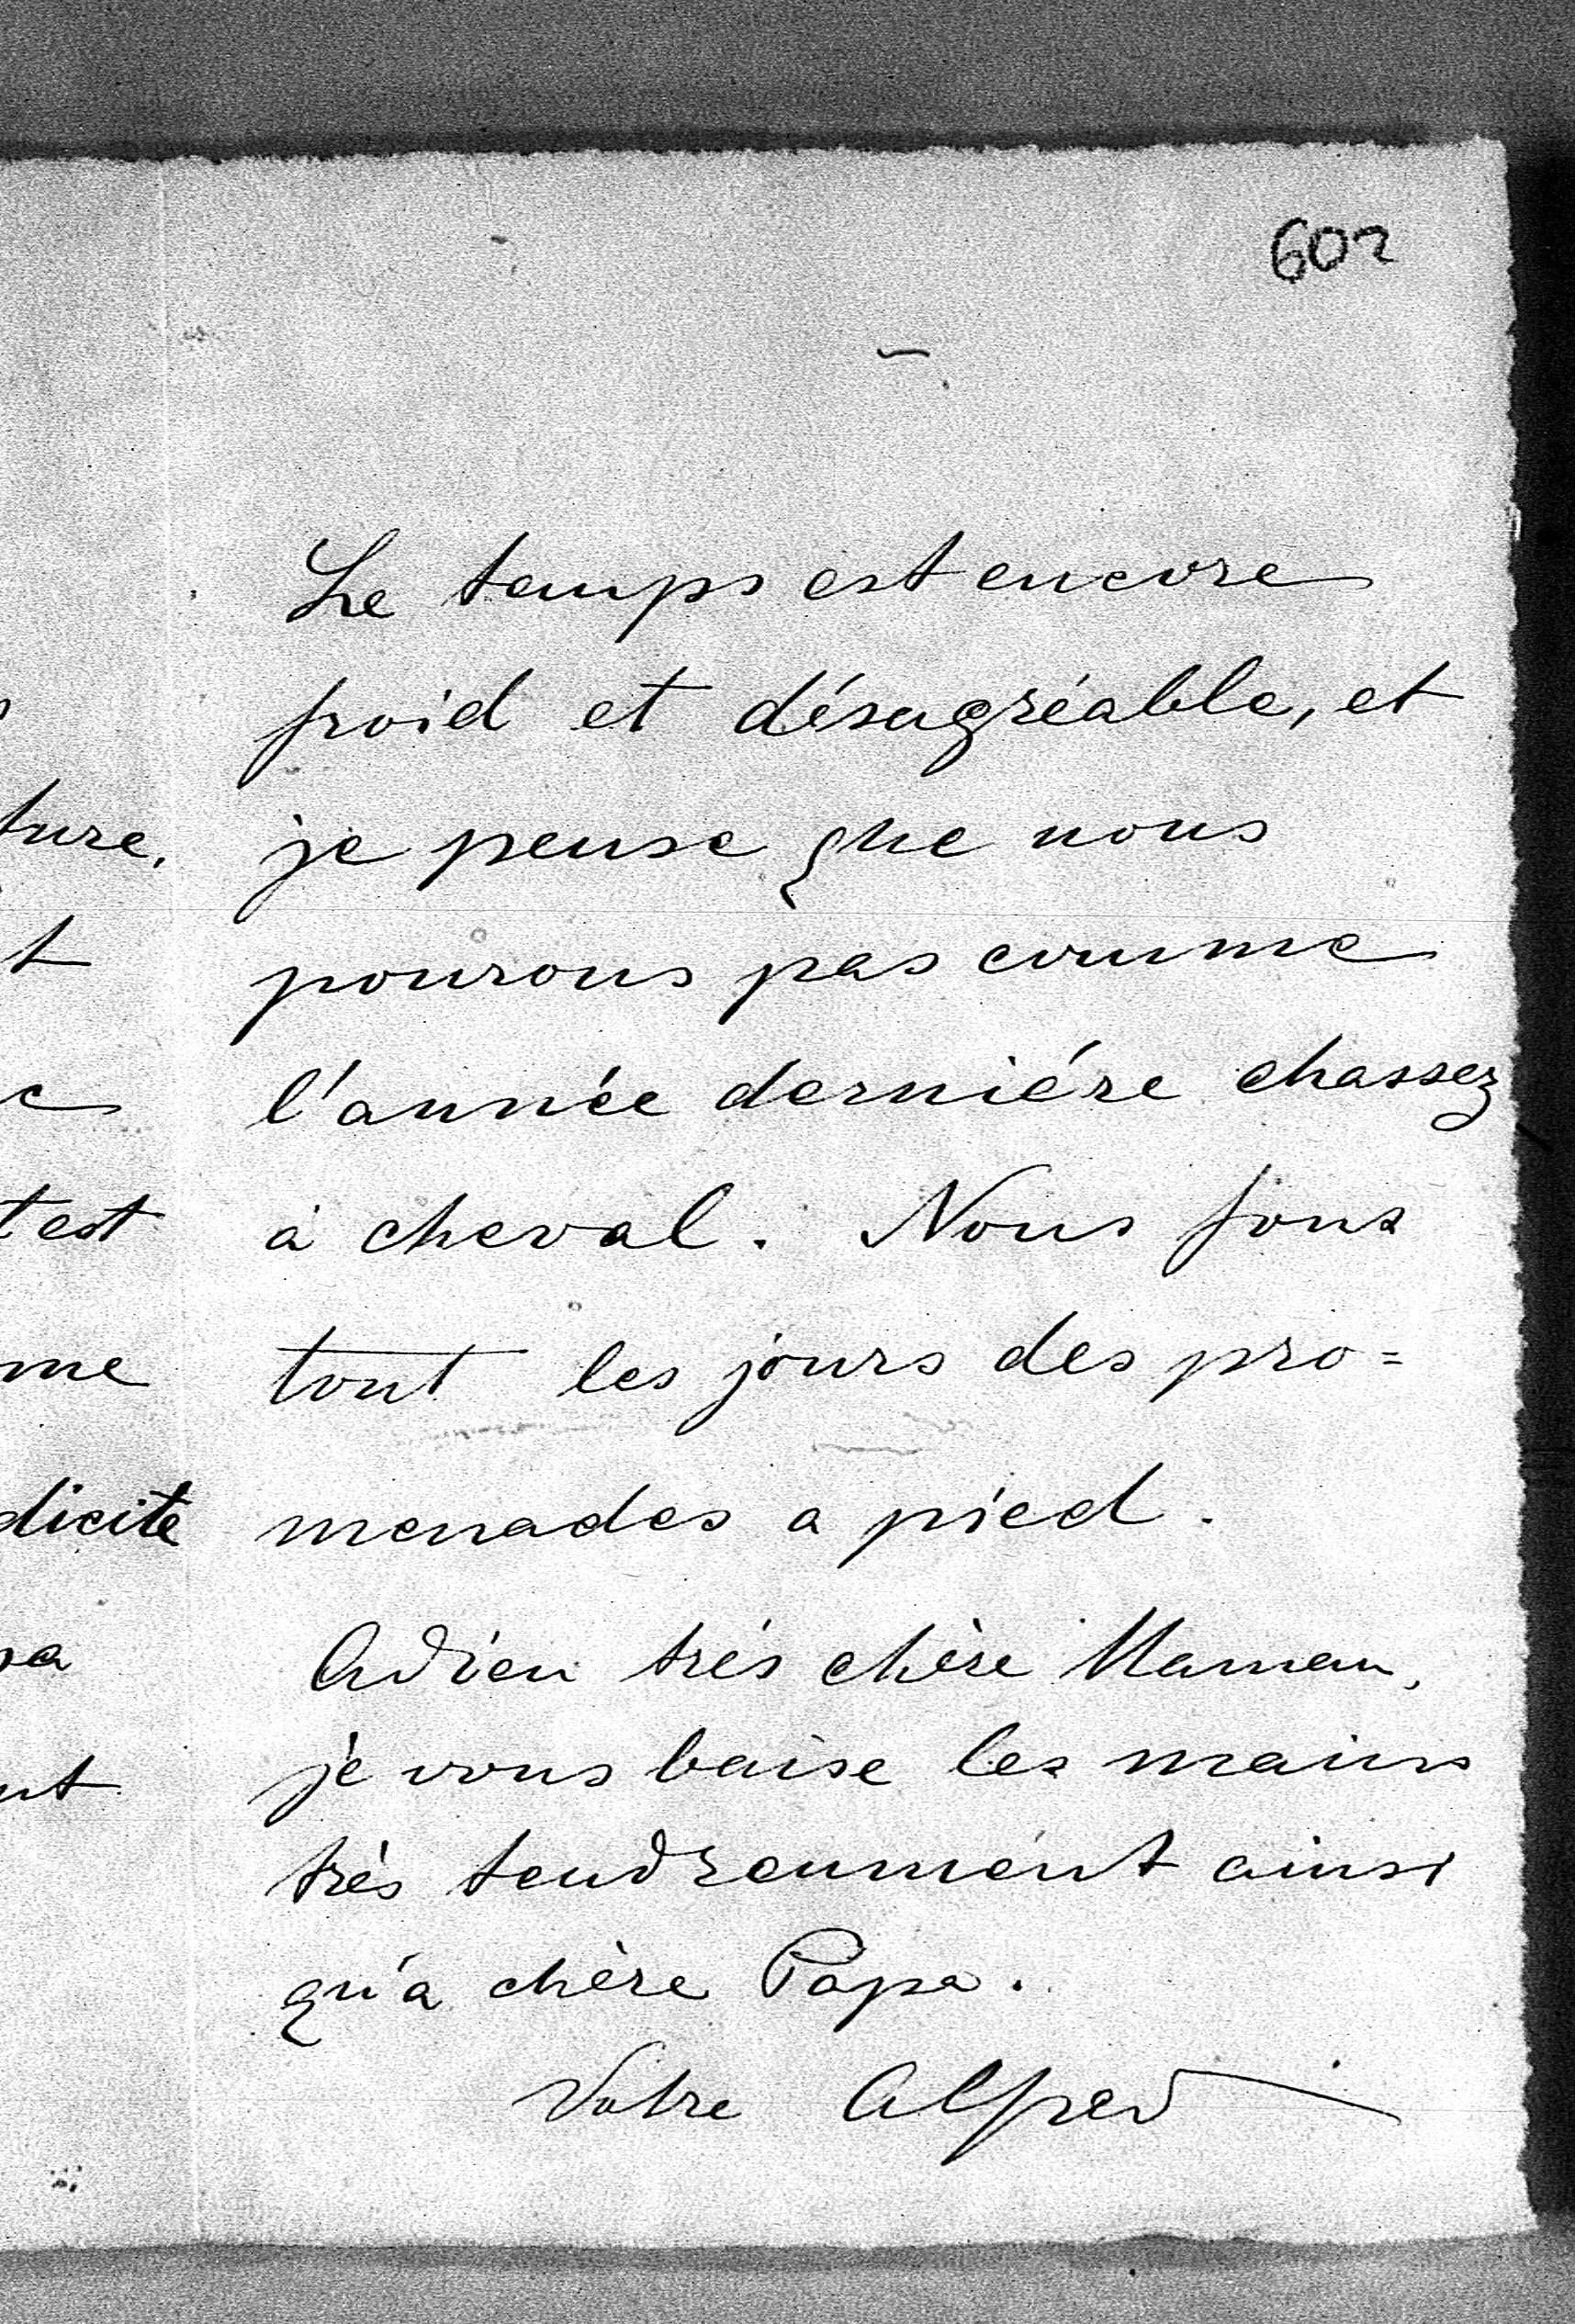 602
Le temps est encore
froid et désagréable, et
je pense que nous
pourons pas comme
l'année derniére chassez
à cheval. Nous fons
tout les jours des pro=
menades a pied.
Adieu trés chère Maman,
je vous baise les mains
très tendreument ainsi
qu'a chère Papa.
Votre Alfred
ture.
t
est
me
dicite